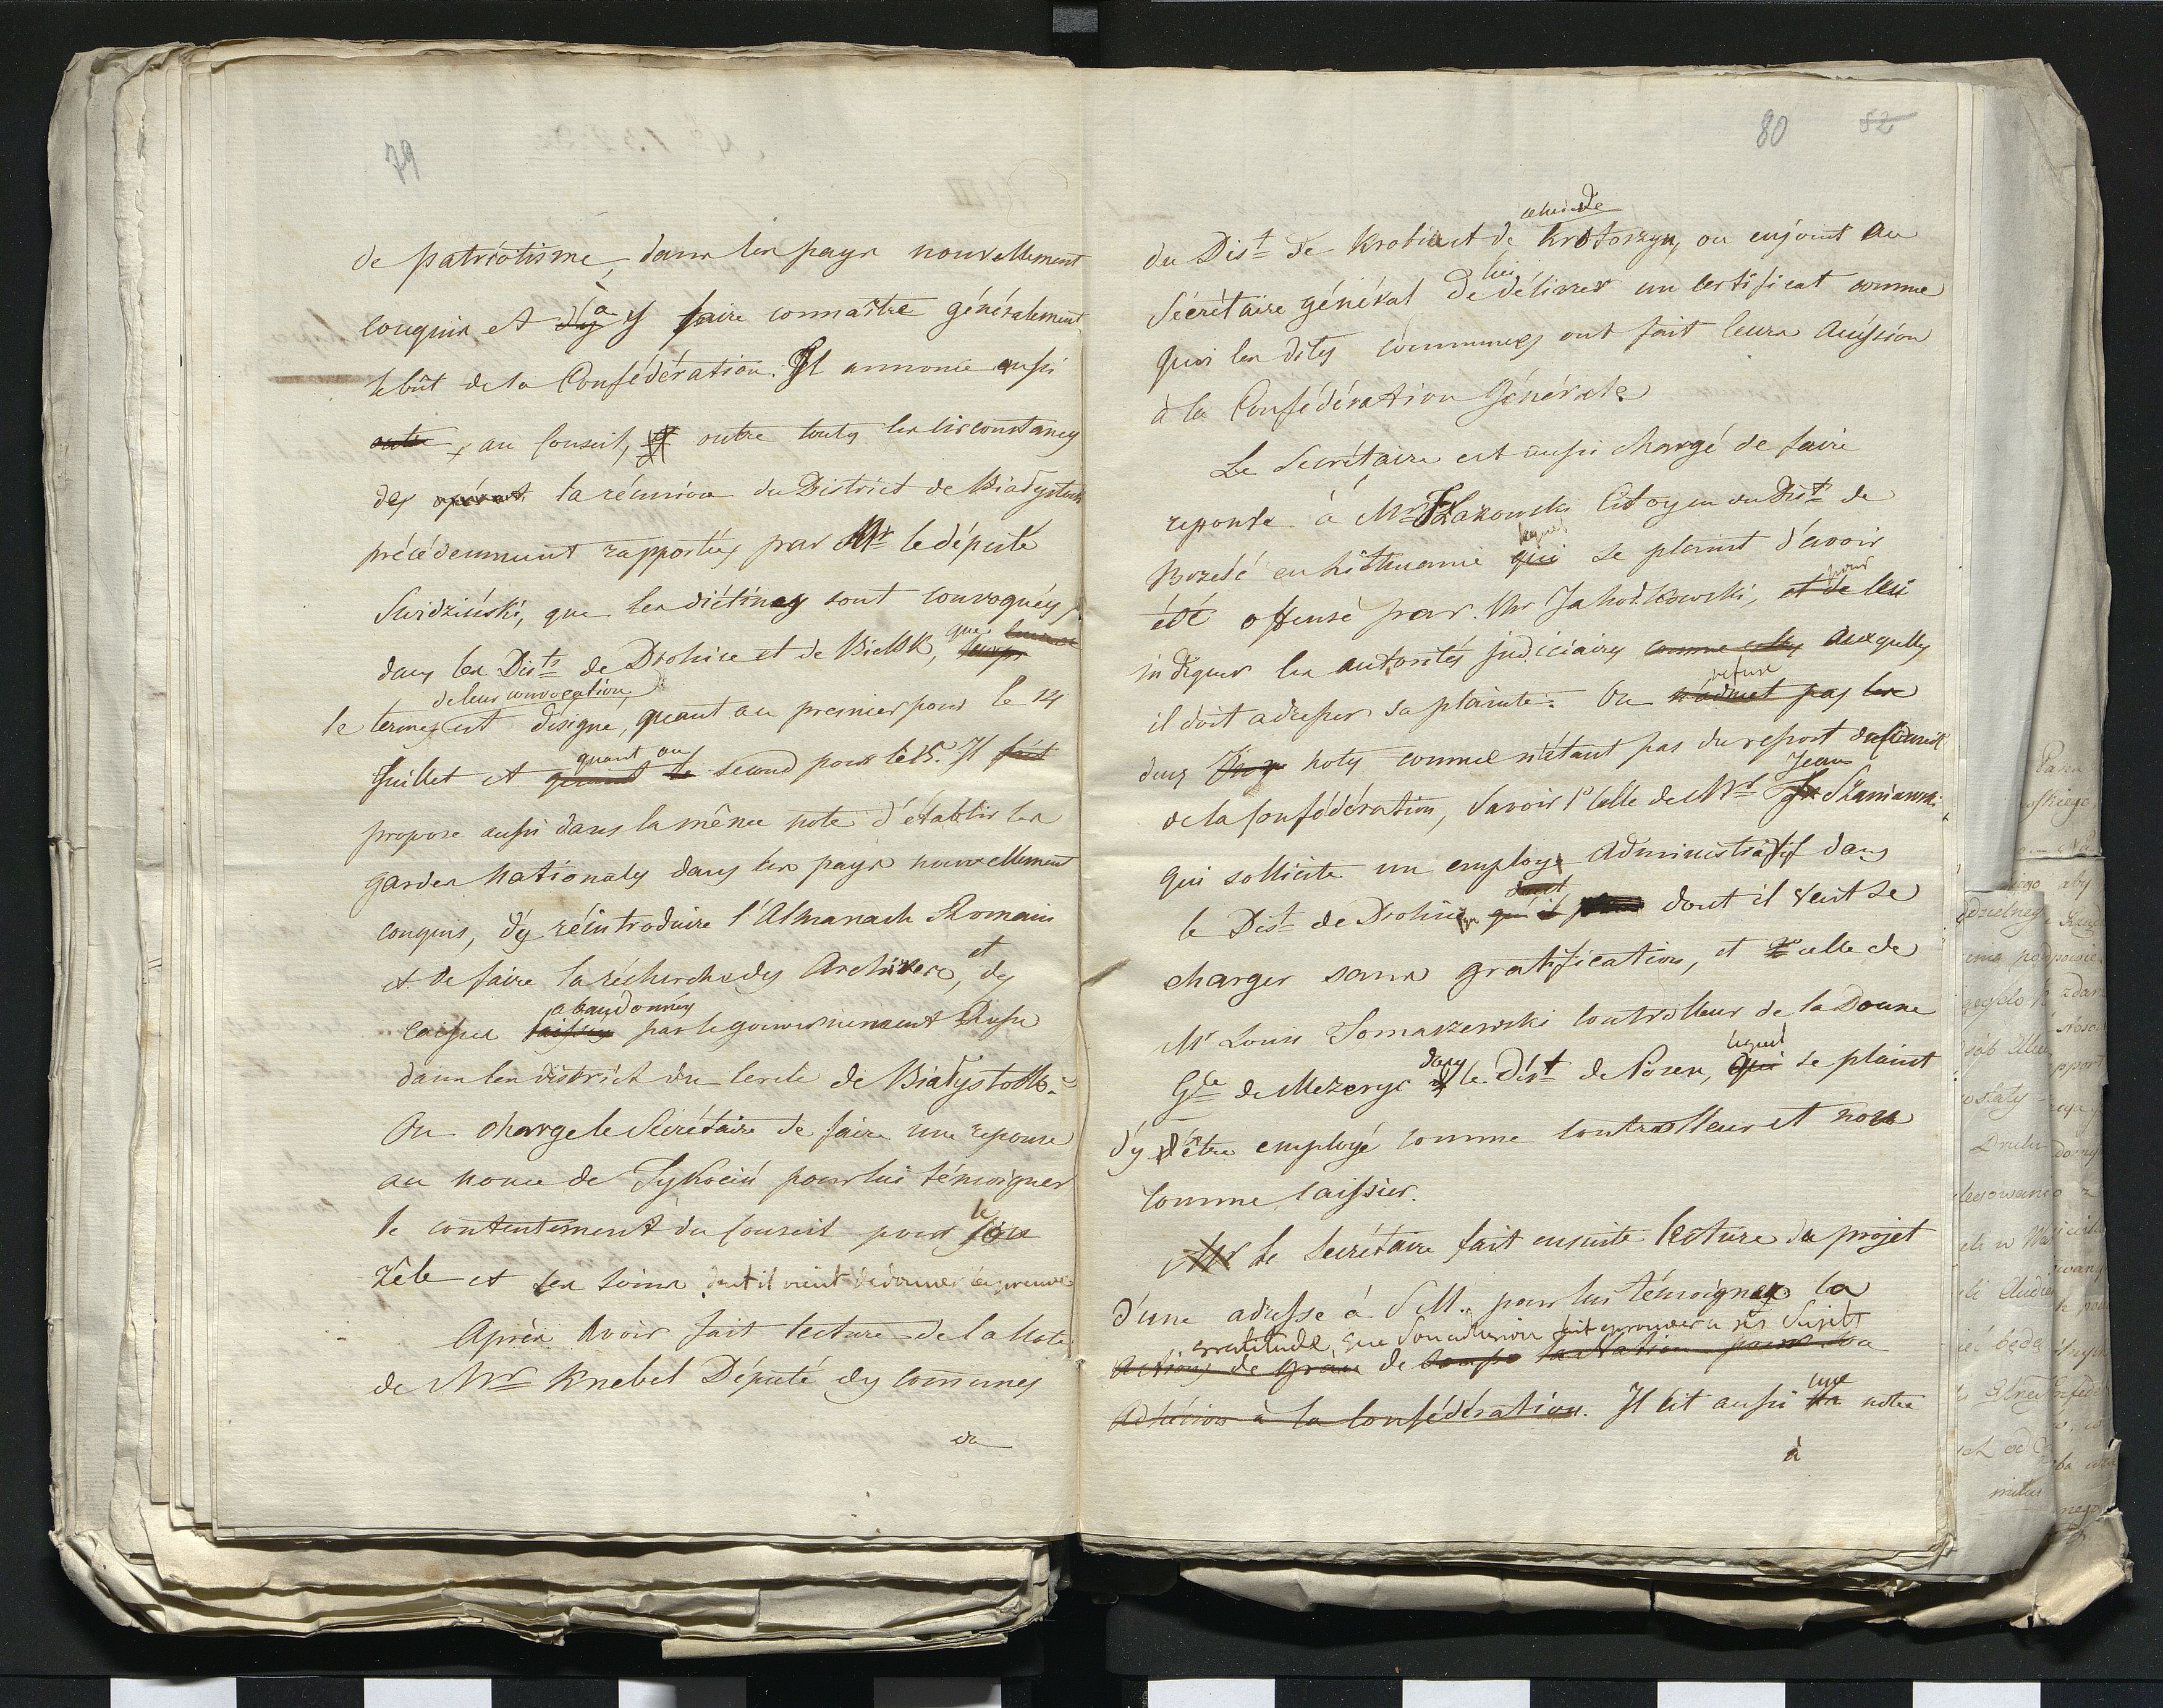 79
de patriotisme, dans les pays nouvellement
conquis et à y faire connaître généralement
le bût de la Confédération. Il annonce aussi
au Conseil, outre toutes les circonstances
des la réunion du District de Białystock
précédemment rapportées par Mr le député
Swidziński, que les diétines sont convoquées,
dans les Dists de Drohice et de Bielsk, que
de leur convocation
le terme est désigné, quant au premier pour le 14
quant au
Juillet et quant le second pour le 15. Il fait
propose aussi dans la même note d'établir les
gardes nationales dans les pays nouvellement
conquis, d'y réintroduire l'Almanach Romain
et de faire la récherche des Archives, et des
abandonnées
caisses laissées par le gouvernement Russe
dans les district du cercle de Białystock.
On charge le Sécrétaire de faire une réponse
au nonce de Tykocin pour lui témoigner
le contentement du Conseil pour le son
zèle et les soins dont il vient de donner les preuves.
Après avoir fait lecture de la Note
de Mr Knebel Député des communes
du
80 52
celui de
du Dist de Krobia et de Krotoszyn, on enjoint au
lui
Sécrétaire général de délivrer un certificat comme
quoi les dites communes ont fait leurs Accession
à la Confédération Générale
Le Secrétaire est aussi chargé de faire
reponse à Mr Citoyen du Dist de
lequel
Brześć en Lithuanie qui se plaint d'avoir
pour
été offensé par Mr Jahodkowski, et de lui
indiquer les autorités judiciaires comme celles auxquelles
refuse
il doit adresser sa plainte. On n'admet pas les
deux notes comme n'étant pas du ressort du Conseil
Jean
de la Confédération, savoir 1º celle de Mr Szaniawski
qui sollicite un employ Administratif dans
dont
le Dist de Drohice qu'il dont il veut se
charger sans gratification, et 2º celle de
Mr Louis Tomaszewski Controlleur de la Doune
dans lequel
Gle de Mezeryc le Dist de Posen, qui se plaint
d'y d'être employé comme Controlleur et non
comme Caissier.
Mr le Secrétaire fait ensuite lecture du projet
d'une adresse à S.M. pour lui témoigner la
gratitude, que Son adhesion fait eprouver a ses Sujets
Actions de grace de la Nation pour sa
une
Adhésion à la Confédération. Il lit aussi la note
à